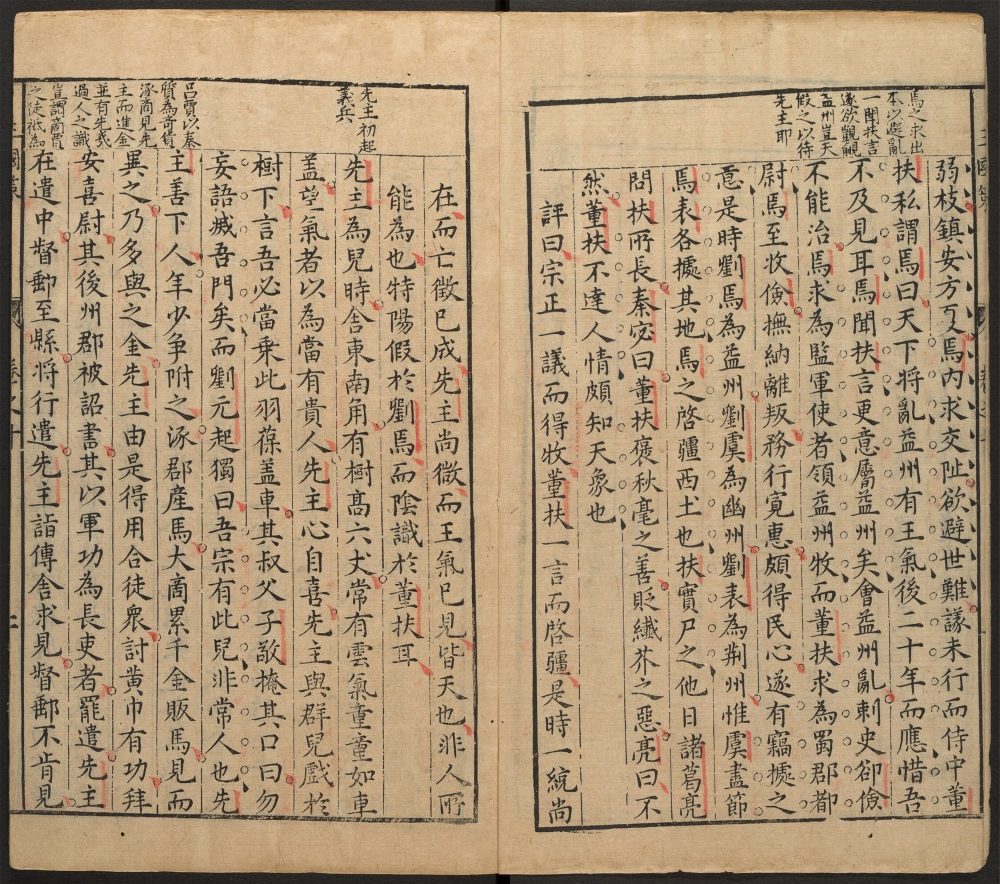 焉之求出
本以避亂
一聞扶言
遂欲觀覦
益州豈天
假之以待
先主耶
弱枝鎮安方夏焉内求交阯欲避世難議未行而侍中董
扶私謂焉曰天下将亂益州有王氣後二十年而應惜吾
不及見耳焉聞扶言更意屬益州矣會益州亂刺史郤儉
不能治焉求為監軍使者領益州牧而董扶求為蜀郡都
尉焉至收儉撫納離叛務行寛惠頗得民心遂有竊㨿之
意是時劉焉為益州劉虞為幽州劉表為荆州惟虞盡節
焉表各㨿其地焉之啓疆西土也扶實尸之他日諸葛亮
問扶所長秦宓曰董扶褒秋毫之善貶纖芥之惡亮曰不
然董扶不達人情頗知天象也
評曰宗正一議而得牧董扶一言而啓疆是時一統尚
先主初起
義兵
在而亡徵已成先主尚微而王氣已見皆天也非人所
能為也特陽假於劉焉而陰識於董扶耳
先主為兒時舎東南角有樹高六丈常有雲氣童童如車
盖望氣者以為當有貴人先主心自喜先主與群兒戲於
樹下言吾必當乗此羽葆盖車其叔父子敬掩其口曰勿
妄語滅吾門矣而劉元起獨曰吾宗有此兒非常人也先
吕賈以秦
質為竒貨
涿商見先
主而進金
並有先㦲
過人之識
豈謂商賈
之徒祗為
主善下人年少争附之涿郡産馬大商累千金販馬見而
異之乃多與之金先主由是得用合徒衆討黄巾有功拜
安喜尉其後州郡被詔書其以軍功為長吏者罷遣先主
在遣中督郵至縣将行遣先主詣傳舎求見督郵不肯見